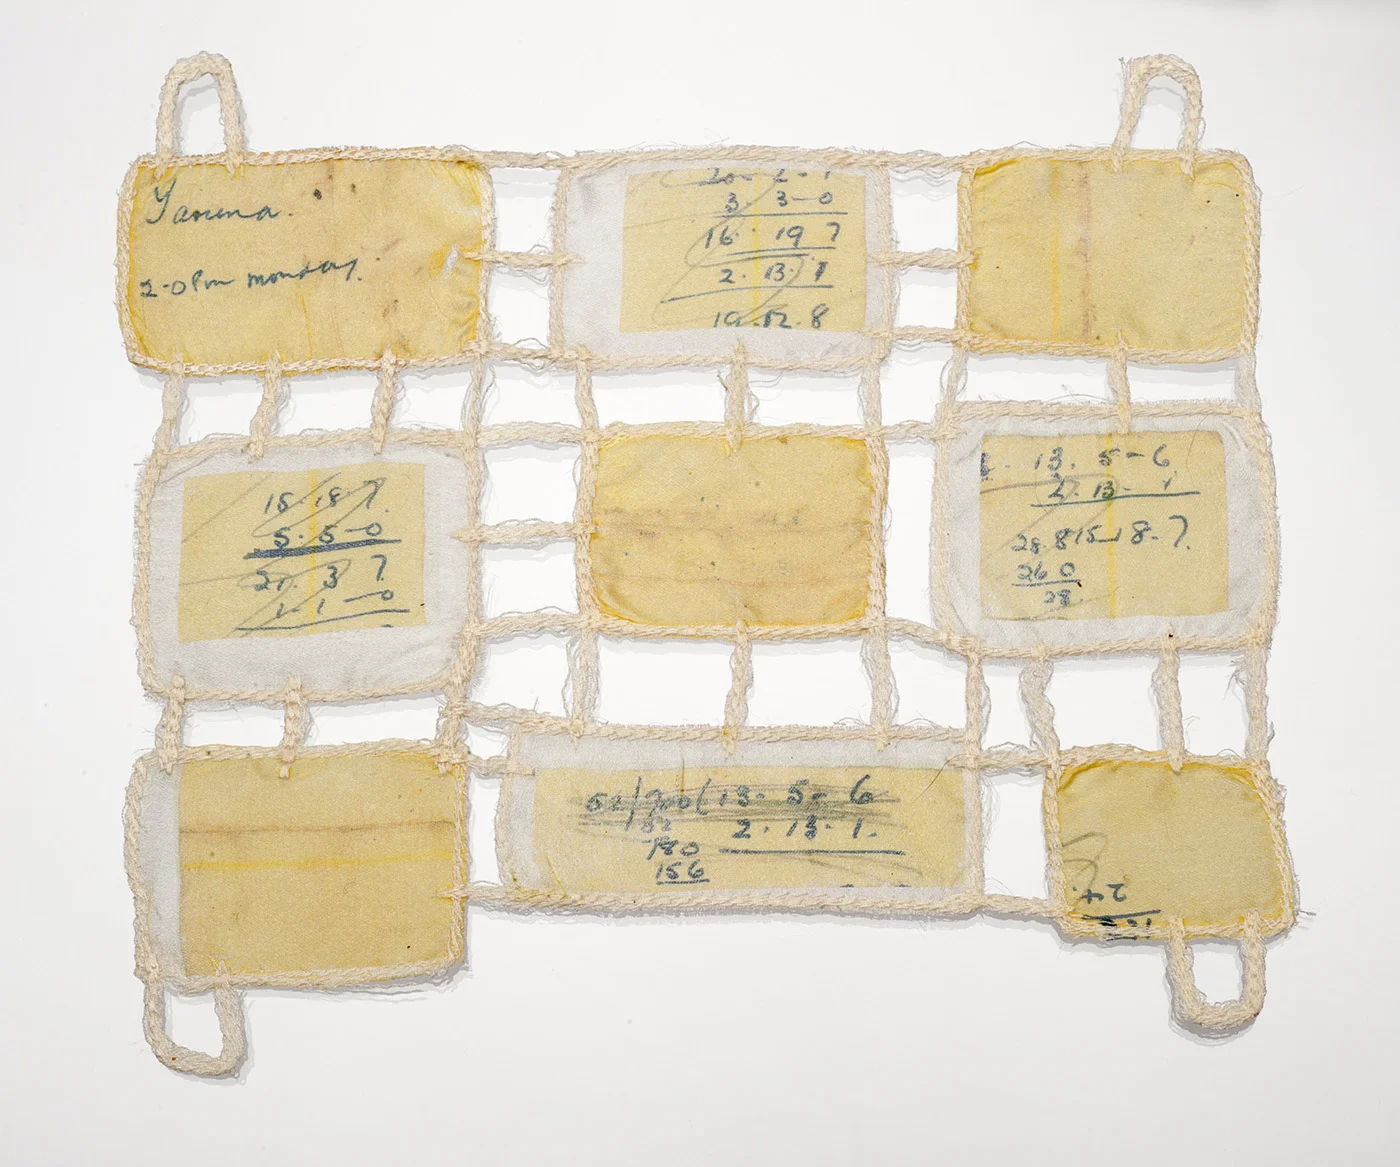 Yaruna.
2-0 Pm monday.
20 2-1
3. 3-0
16. 19 7
2. 13. 1
19.12.8
18.18 7.
5. 5-0
21. 3 7.
1-1-0
13. 5-6
2. 13- 1
28.815-18-7.
26 0
28.
52/700(13- 5- 6
52 2. 13- 1.
180
156
24.